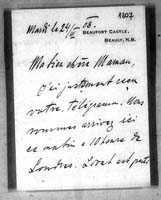 1807
Mardi le 24/II 08.
BEAUFORT CASTLE,
BEAULY, N.B.
Ma bien chère Maman,
J'ai justement reçu
votre télégram. Nous
sommes arrivés ici
ce matin à 10 heure de
Londres. Lovat est